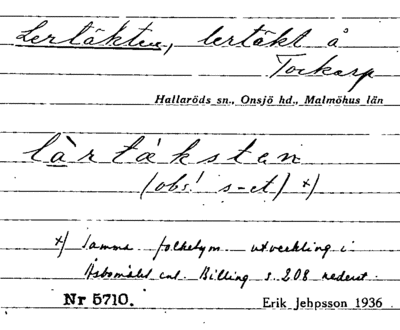 Lertäkten, lertäkt å
Tockarp
Hallaröds sn., Onsjö hd., Malmöhus län
làrtáksten
(obs! s-et) x)
x) Samma folketym. utveckling i
Åsbomålet enl. Billing s. 208 nederst.
Nr 5710. Erik Jehpsson 1936